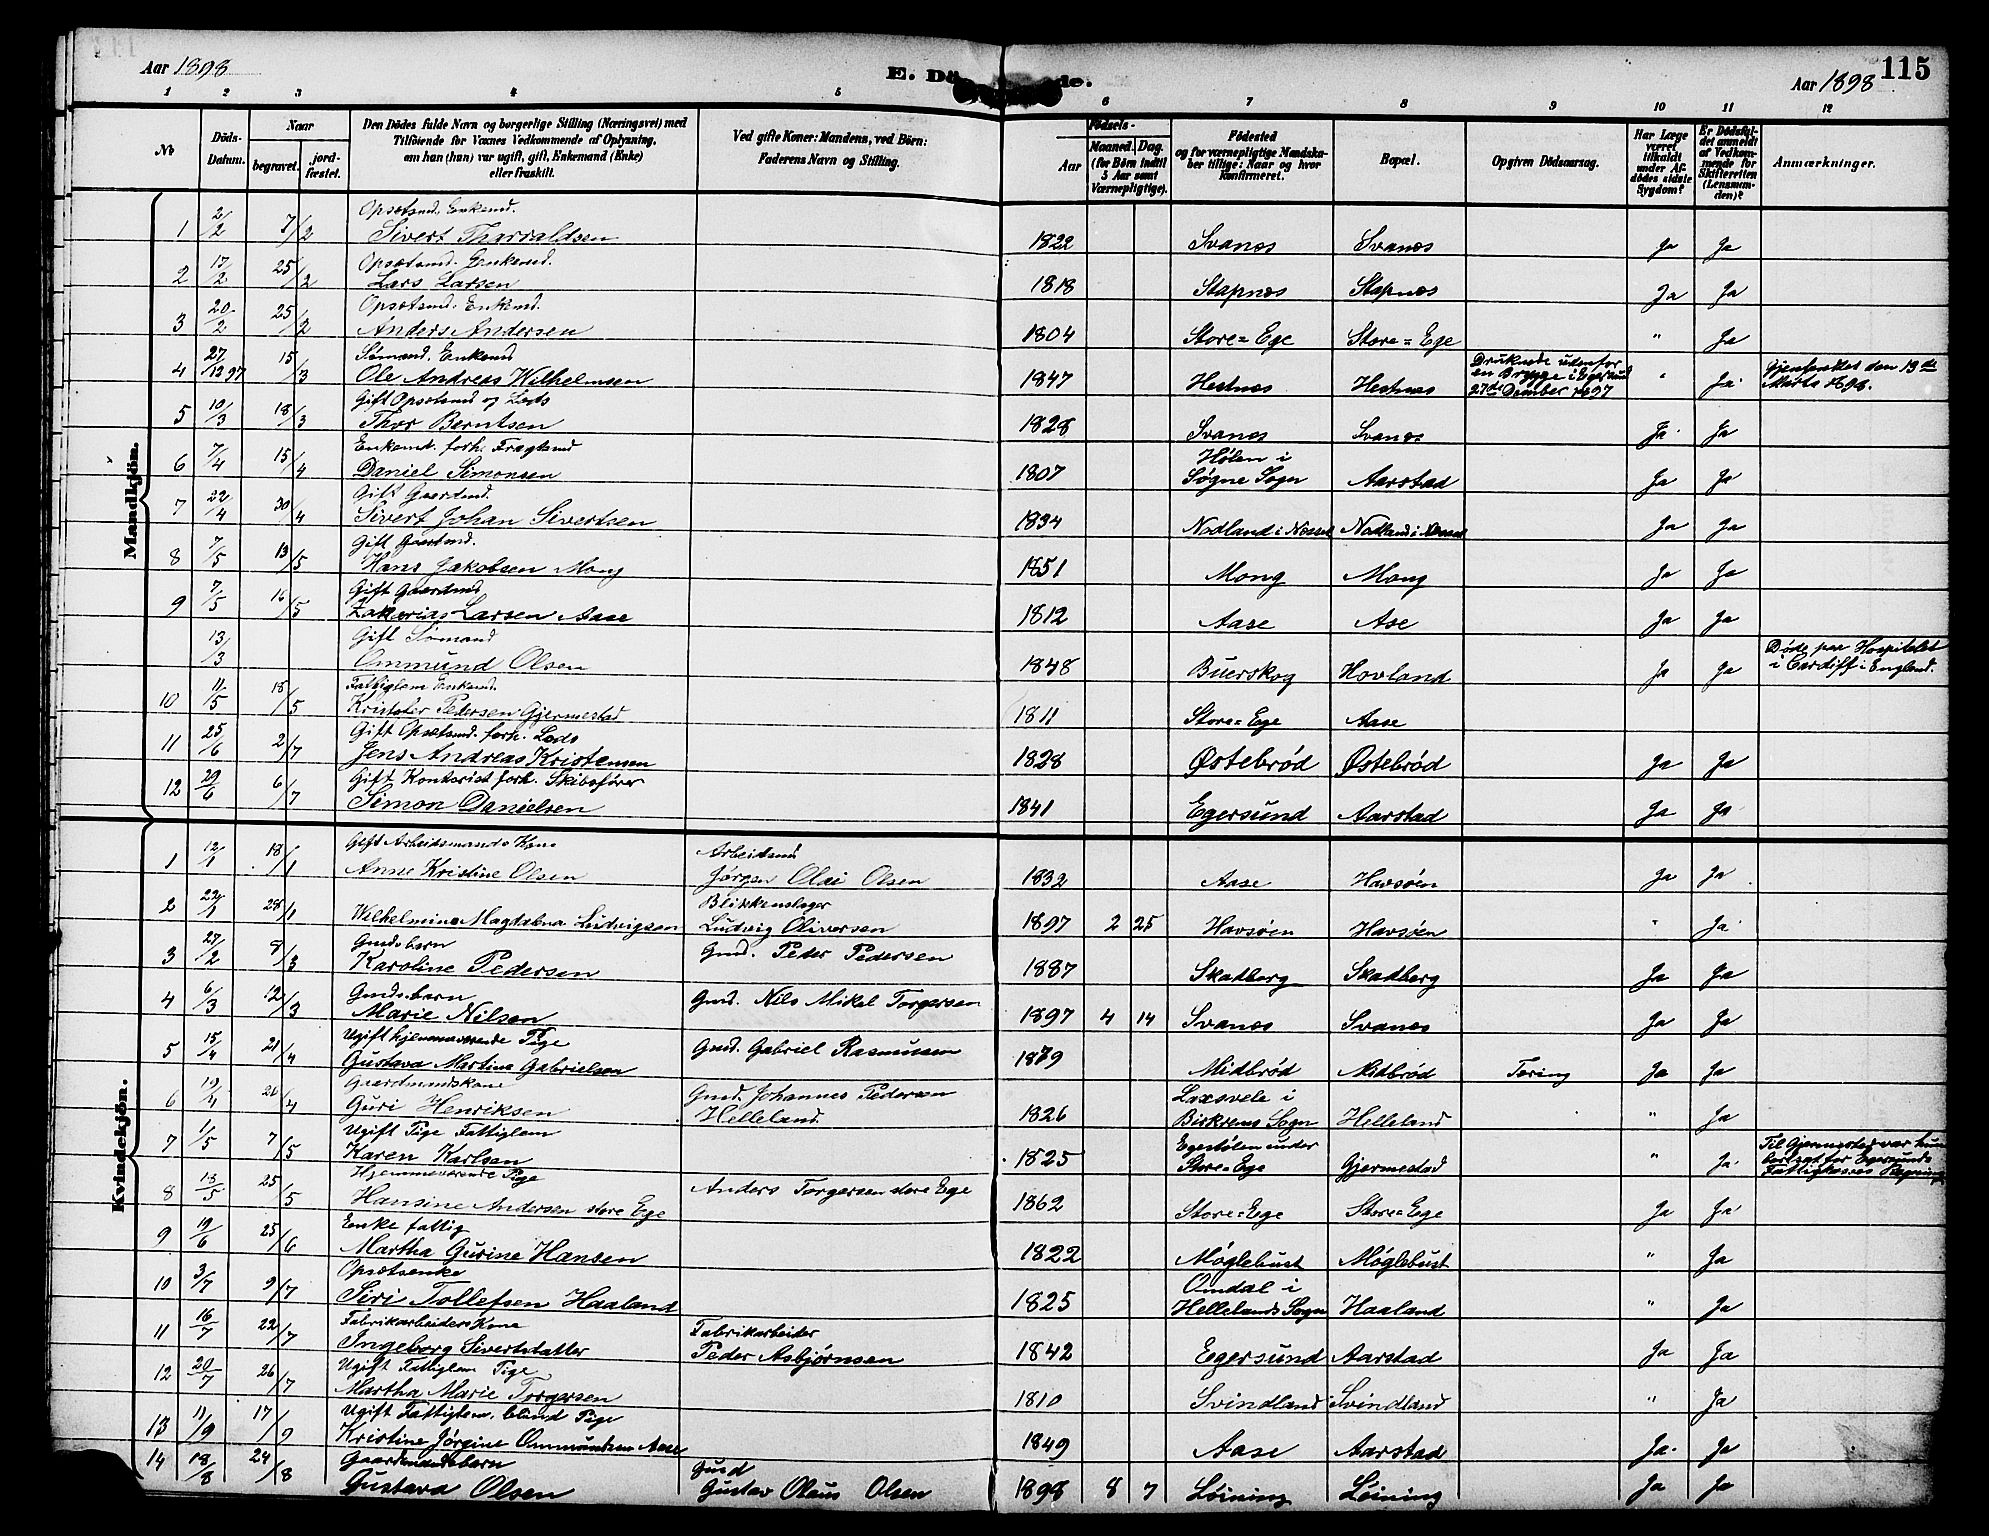 Aar 1898
E. Dö de.
Aar 1898
115
1 2 3 4 5 6 7 8 9 10 11 12
No
Döds-Datum.
Naar
begravet.
jord-fæstet.
Den Dödes fulde Navn og borgerlige Stilling (Næringsvei) med
Tilföiende for Voxnes Vedkommende af Oplysning,
om han (hun) var ugift, gift, Enkemand (Enke)
eller fraskilt.
Ved gifte Koner: Mandens, ved Börn:
Faderens Navn og Stilling.
Födsels-
Aar
Maaned. Dag.
(for Börn indtil
5 Aar samt
Værnepligtige).
Födested
og for værnepligtige Mandska-
ber tillige: Naar og hvor
Konfirmeret.
Bopæl.
Opgiven Dödsaarsag.
Har Læge
været
tilkaldt
under Af-
dödes sidste
Sygdom?
Er Dödsfal-
det anmeldt
af Vedkom-
mende for
Skifteretten
(Lensman-
den)?
Anmærkninger.
Mandkjön.
Opsætsmd. Enkemd.
1 2/2 7/2 Sivert Tharraldsen 1822 Svanæs Svanæs Ja Ja
Opsætsmd. Enkemd.
2 17/2 25/2 Lars Larsen 1818 Stapnæs Stapnæs Ja Ja
Opsætsmd. Enkemd.
3 20/2 25/2 Anders Andersen 1804 Store=Ege Store=Ege " Ja
Sømand. Enkemd
4 27/12 97 15/3 Ole Andreas Wilhelmsen 1847 Hestnæs Hestnæs Druknede udenfor en Brygge i Egersund 27de Dember 1897 " Ja. Gjenfunket den 13de Marts 1898.
Gift Opsætsmd og Lods
5 10/3 18/3 Thor Berntsen 1828 Svanæs Svanæs Ja Ja
Enkemd. forh.
6 7/4 15/4 Daniel Simonsen 1807 Hølen i Søgne Sogn Aarstad Ja Ja
Gift Gaardmd.
7 22/4 30/4 Sivert Johan Sivertsen 1834 Nodland i Næssel Nodland i Næssel Ja Ja
Gift Gaardmd.
8 7/5 13/5 Hans Jakobsen Mong 1851 Mong Mong Ja Ja
Gift Gaardmd
9 7/5 16/5 Zakarias Larsen Aase 1812 Aase Ase Ja Ja
Gift Sømand
13/3 Ommund Olsen 1848 Buerskog Hovland Ja Ja Døde paa Hospitalet i Cardiff i England.
Fattiglem Enkemd.
10 11/5 18/5 Kristofer Pedersen Gjermestad 1811 Store=Ege Aase
Gift Opsætsmd. forh. Lods
11 25/6 2/7 Jens Andreas Kristensen 1828 Østebrød Østebrød Ja Ja
Gift Kontorist forh. Skibsfører
12 29/6 6/7 Simon Danielsen 1841 Egersund Aarstad Ja Ja
Kvindekjön.
Gift Arbeidsmands Kone Arbeidsmd
1 12/1 18/1 Anne Kristine Olsen Jørgen Olai Olsen 1832 Aase Havsøen Ja Ja
Blikkenslager
2 22/1 28/1 Wilhelmine Magdalena Ludvigsen Ludvig Oliversen 1897 2 25 Havsøen Havsøen " Ja
Gmds barn
3 27/2 8/3 Karoline Pedersen Gmd. Peder Pedersen 1887 Skadberg Skadberg Ja Ja
Gmds. barn
4 6/3 12/3 Marie Nilsen Gmd. Nils Mikel Torgersen 1897 4 14 Svanæs Svanæs Ja Ja
Ugift hjemmeværende Pige
5 15/4 21/4 Gustava Martine Gabrielsen Gmd. Gabriel Rasmussen 1879 Midbrød Midbrød Tæring Ja Ja
Gaardmandskone
6 19/4 26/4 Guri Henriksen Gmd. Johannes Pedersen Helleland 1826 Laxsvele i Birkrems Sogn Helleland " Ja
Ugift Pige Fattiglem
7 1/5 7/5 Karen Karlsen 1825 Egestølen under Store=Ege Gjermestad " Ja. Til Gjermestad var hun bortsat for Egersunds Fattigkasses Regning
Hjemmeværende Pige
8 18/5 25/5 Hansine Andersen store Ege Anders Torgersen store Ege 1862 Store=Ege Store=Ege Ja Ja
Enke fattig
9 19/6 25/6 Martha Gurine Hansen 1822 Møglebust Møglebust " Ja
Opsætsenke
10 3/7 9/7 Siri Tollefsen Haaland 1825 Omdal i Hellelands Sogn Haaland " Ja
Fabrikarbeiders Kone Fabrikarbeider
11 16/7 22/7 Ingeborg Sivertsdatter Peder Asbjørnsen 1842 Egersund Aarstad Ja Ja
Ugift Fattiglem Pige
12 20/7 26/7 Martha Marie Torgersen 1810 Svindland Svindland " Ja
Ugift Fattiglem, blind Pige
13 11/9 17/9 Kristine Jørgine Ommundsen Aase 1849 Aase Aarstad Ja. Ja
Gaardmandsbarn Gmd
14 18/8 24/8 Gustava Olsen Gustav Olaus Olsen 1898 8 7 Løining Løining Ja Ja